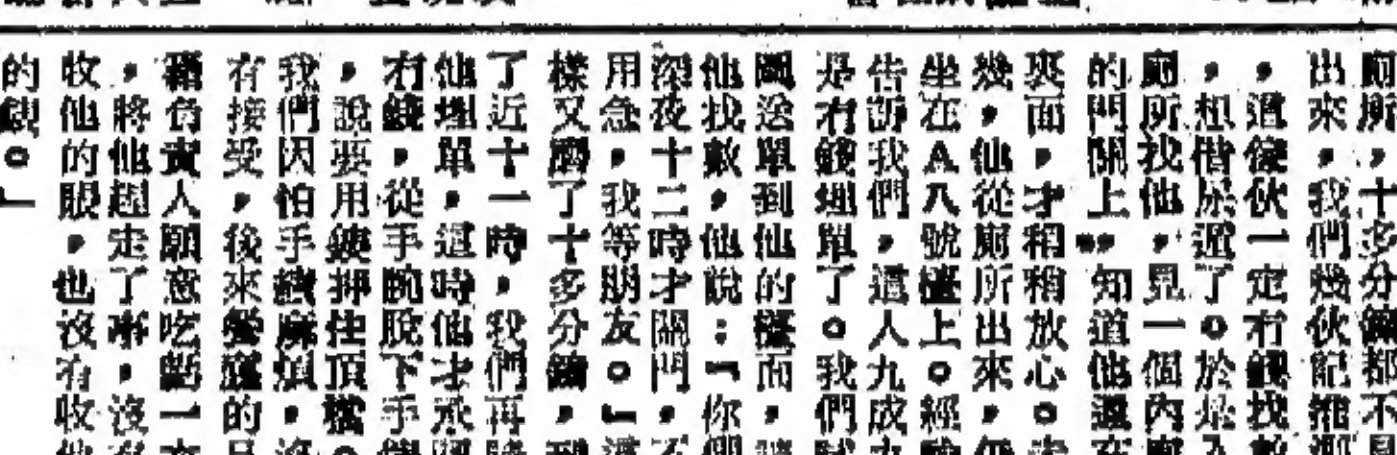 廁廁，十多分鐘都不見
出來，我們幾伙記推測
，這傢伙一定冇錢找數
，想借尿遁了。於是入
廁所找他，見一個內廁
的門關上，知道他還在
裏面，才稍稍放心。未
幾，他從廁所出來，仍
坐在A八號檯上。經驗
告訴我們，這人九成九
是冇錢埋單了。我們試
圖送單到他的檯面，請
他找數，他說：「你們
深夜十二時才關門，不
用急，我等朋友。」這
樣又磨了十多分鐘，到
了近十一時，我們再請
他埋單，這時他才承認
冇錢，從手腕脫下手錶
，說要用錶押住頂檔。
我們因怕手續麻煩，沒
有接受，後來餐廳的
負責人願意吃虧一
，將他趕走了事，沒有
收他的賬，也沒有收他
的錶。」